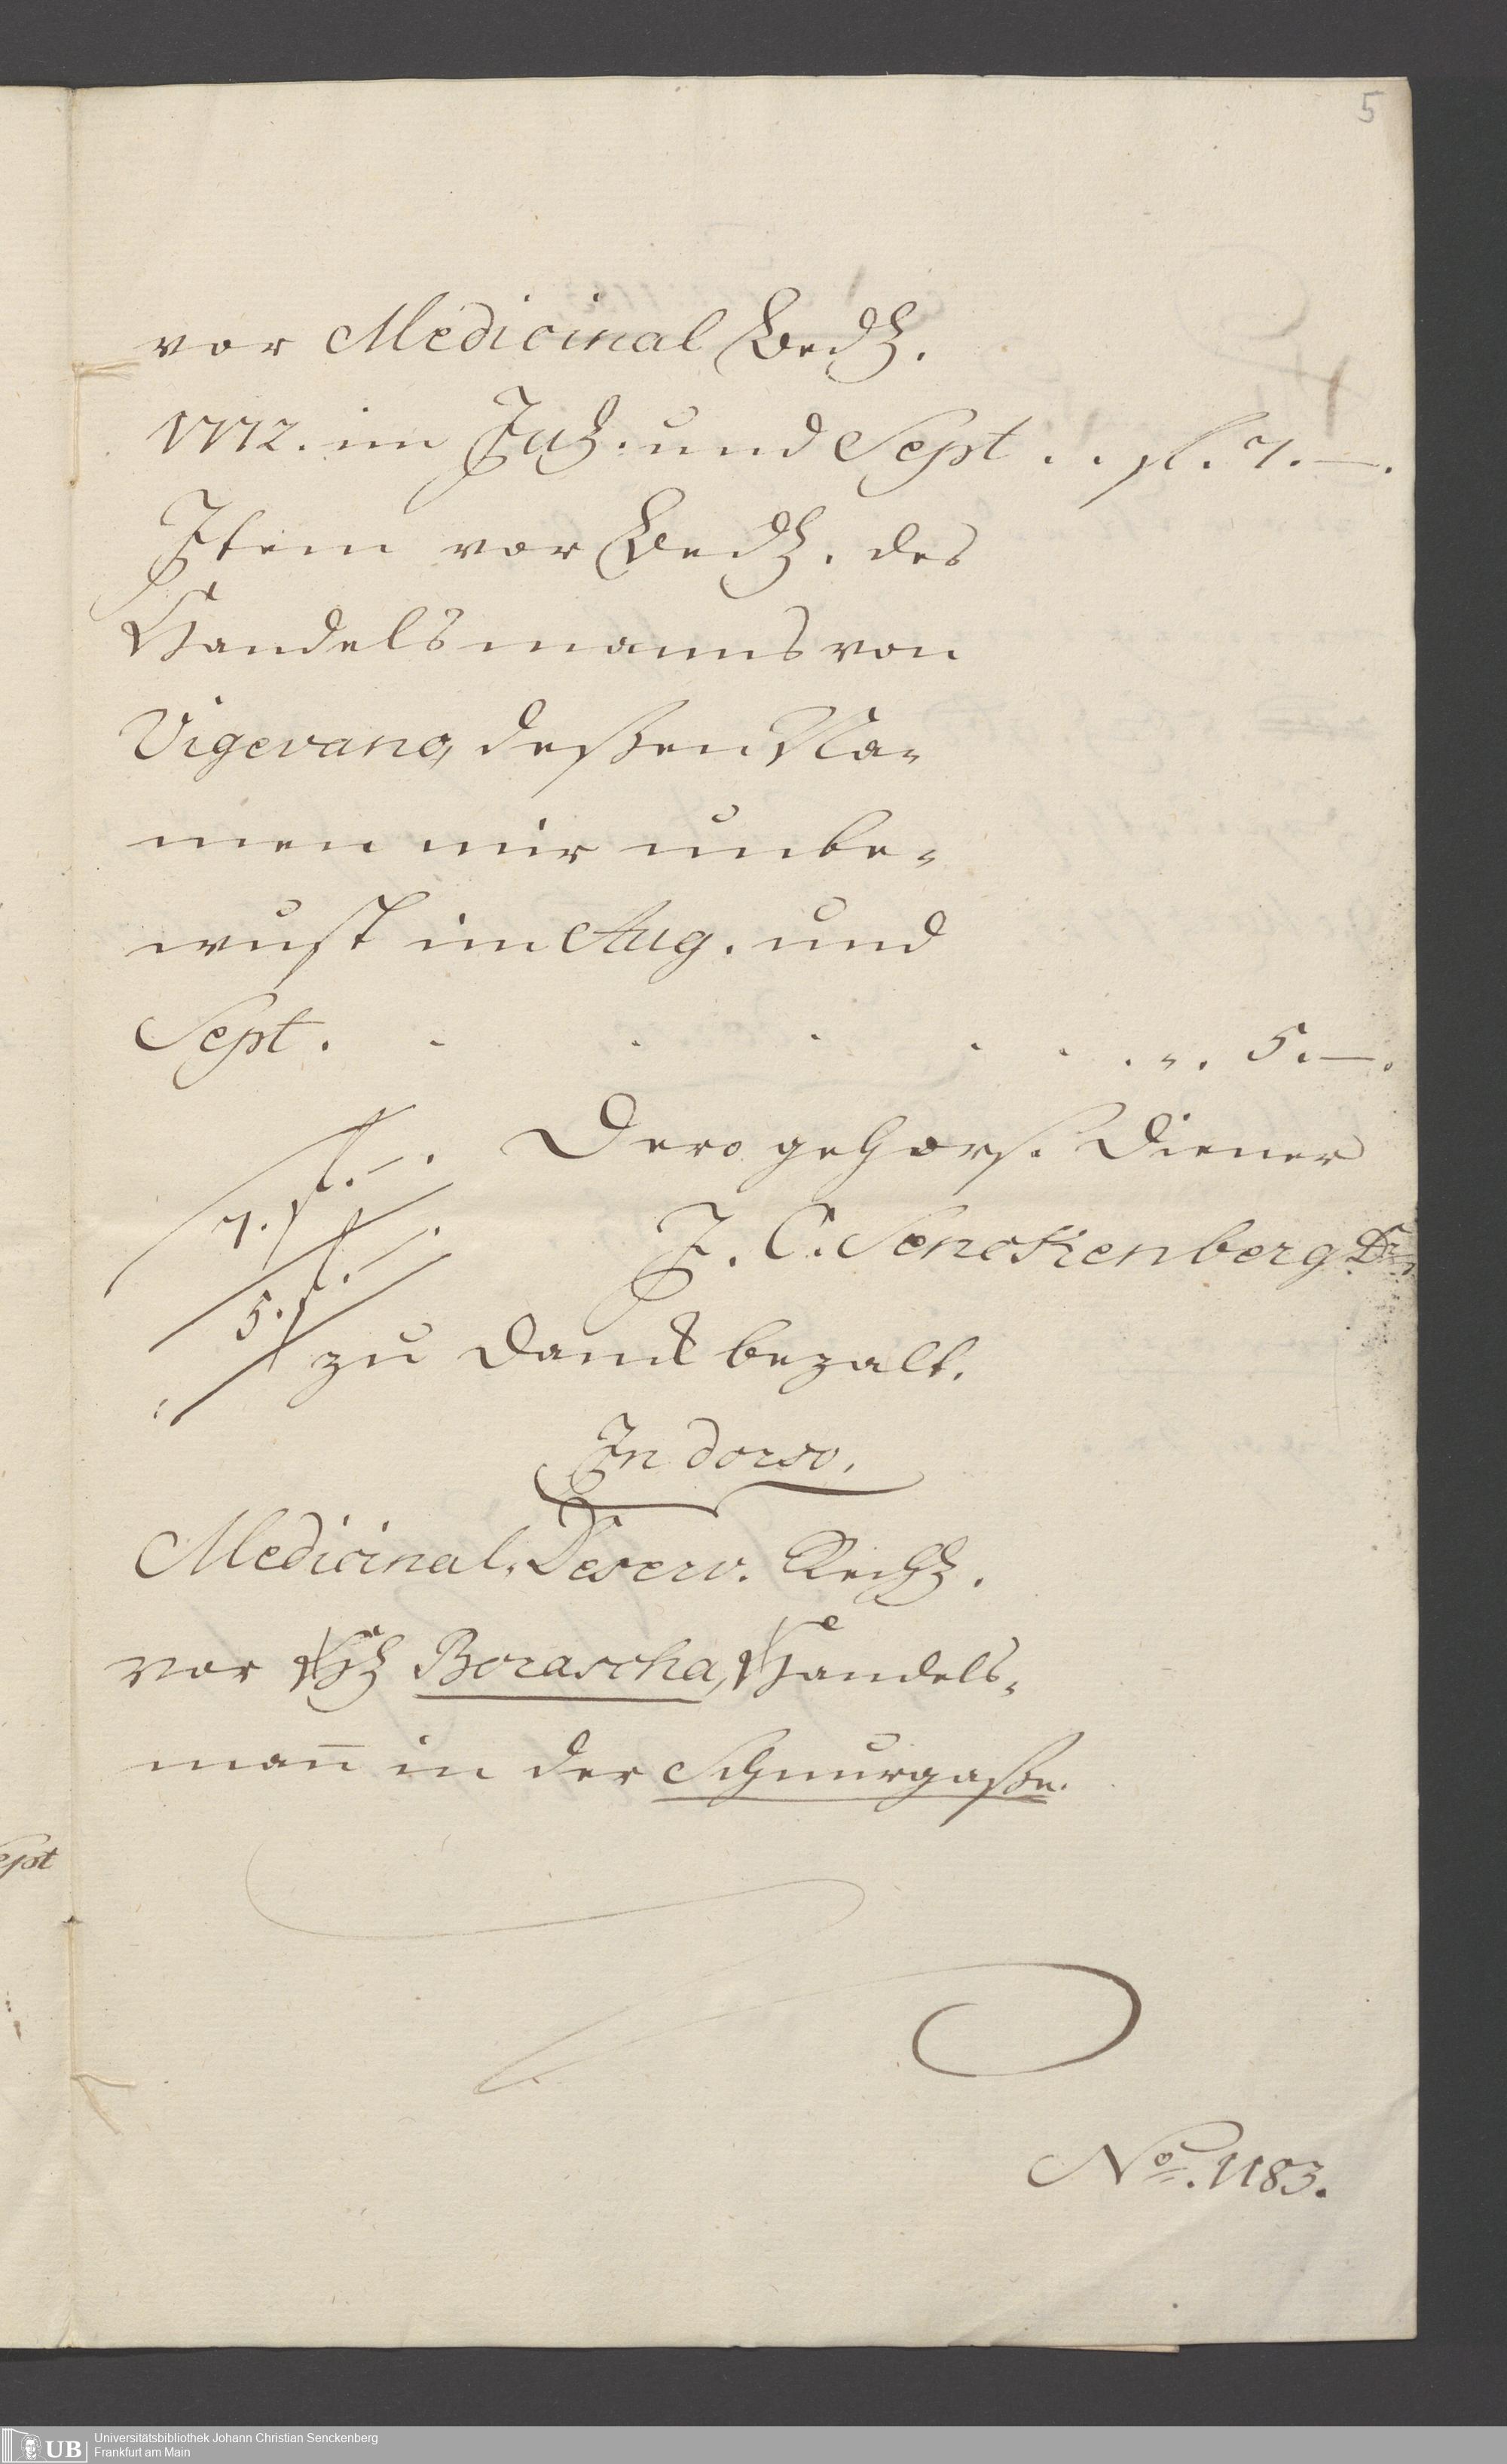 5
vor Medicinal Bed.
1772. im Jul. und Sept . . fl. 7. —.
Item vor Bed. des
Handelsmanns von
Vigevano, deßen Na-
men mir unbe-
wust im Aug. und
Sept. . . . . . . „. 5. —.
Dero gehors. Diener
7. fl. —.
J. C. Senckenberg Dr.
5. fl. —.
zu Danck bezalt.
In dorso.
Medicinal. Deserv. Rech.
vor H. Borascha, Handels-
mañ in der Schnurgaße.
ept
No. 1183.
Universitätsbibliothek Johann Christian Senckenberg
Frankfurt am Main
UB